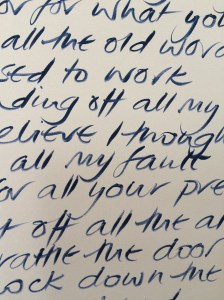 or for what you
all the old word
sed to work
ding off all my
elieve I thoug
all my fault
for all your pre
t off all the al
rathe the door
ock down the